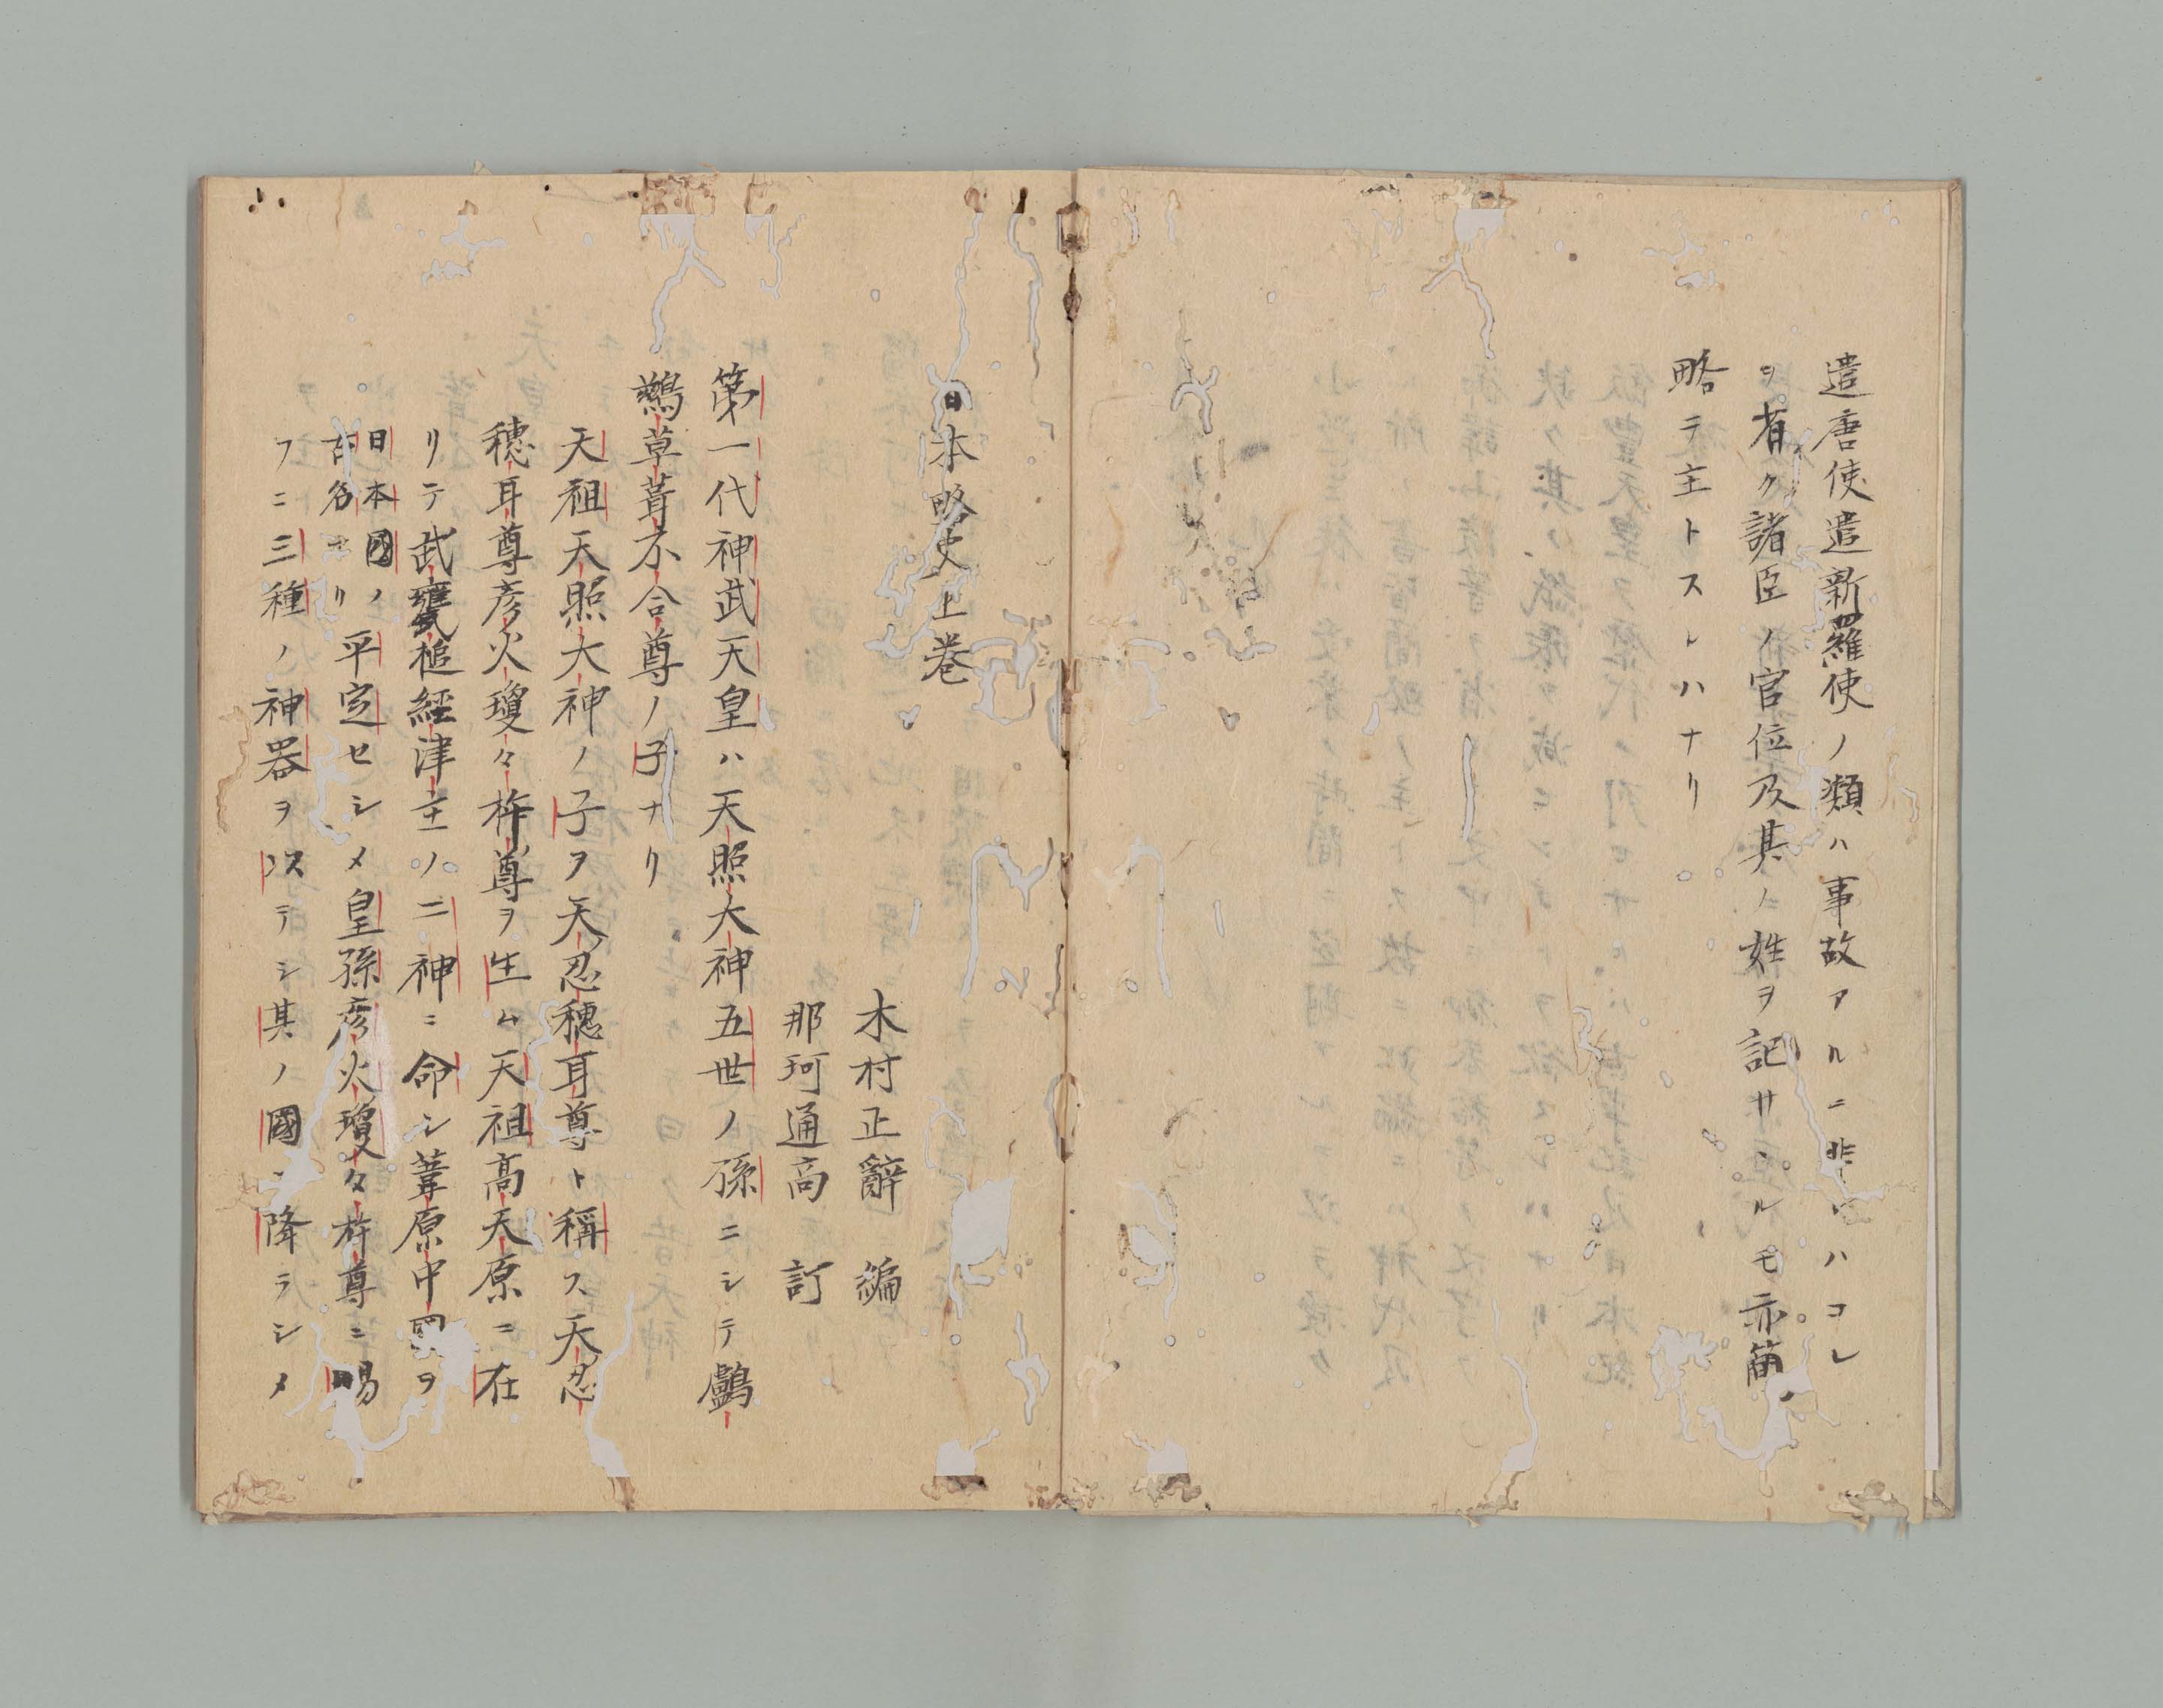 遣唐使遣新羅使ノ類ハ事故アルニ非レハコレ
ヲ省ク諸臣ノ官位及其ノ姓ヲ記サヽルモ亦簡
略ヲ主トスレハナリ
日本略史上巻
木村正辭 編
那珂通高 訂
第一代神武天皇ハ天照大神五世ノ孫ニシテ鸕
鷀草葺不合尊ノ子ナリ
天祖天照大神ノ子ヲ天忍穂耳尊ト稱ス天忍
穂耳尊彦火瓊々杵尊ヲ生ム天祖高天原ニ在
リテ武甕槌經津主ノ二神ニ命シ葦原中国ヲ
日本國ノ
古名ナリ
平定セシメ皇孫彦火瓊々杵尊ニ賜
フニ三種ノ神器ヲ以テシ其ノ國ニ降ラシメ